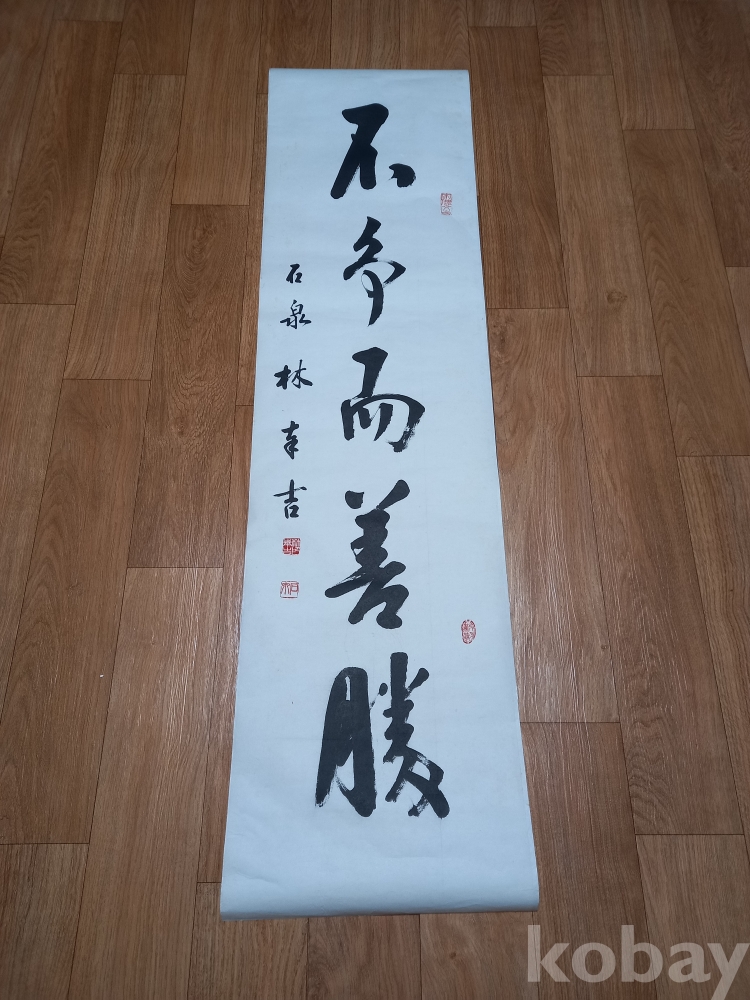 不爭而善勝
石泉 林幸吉
kobay